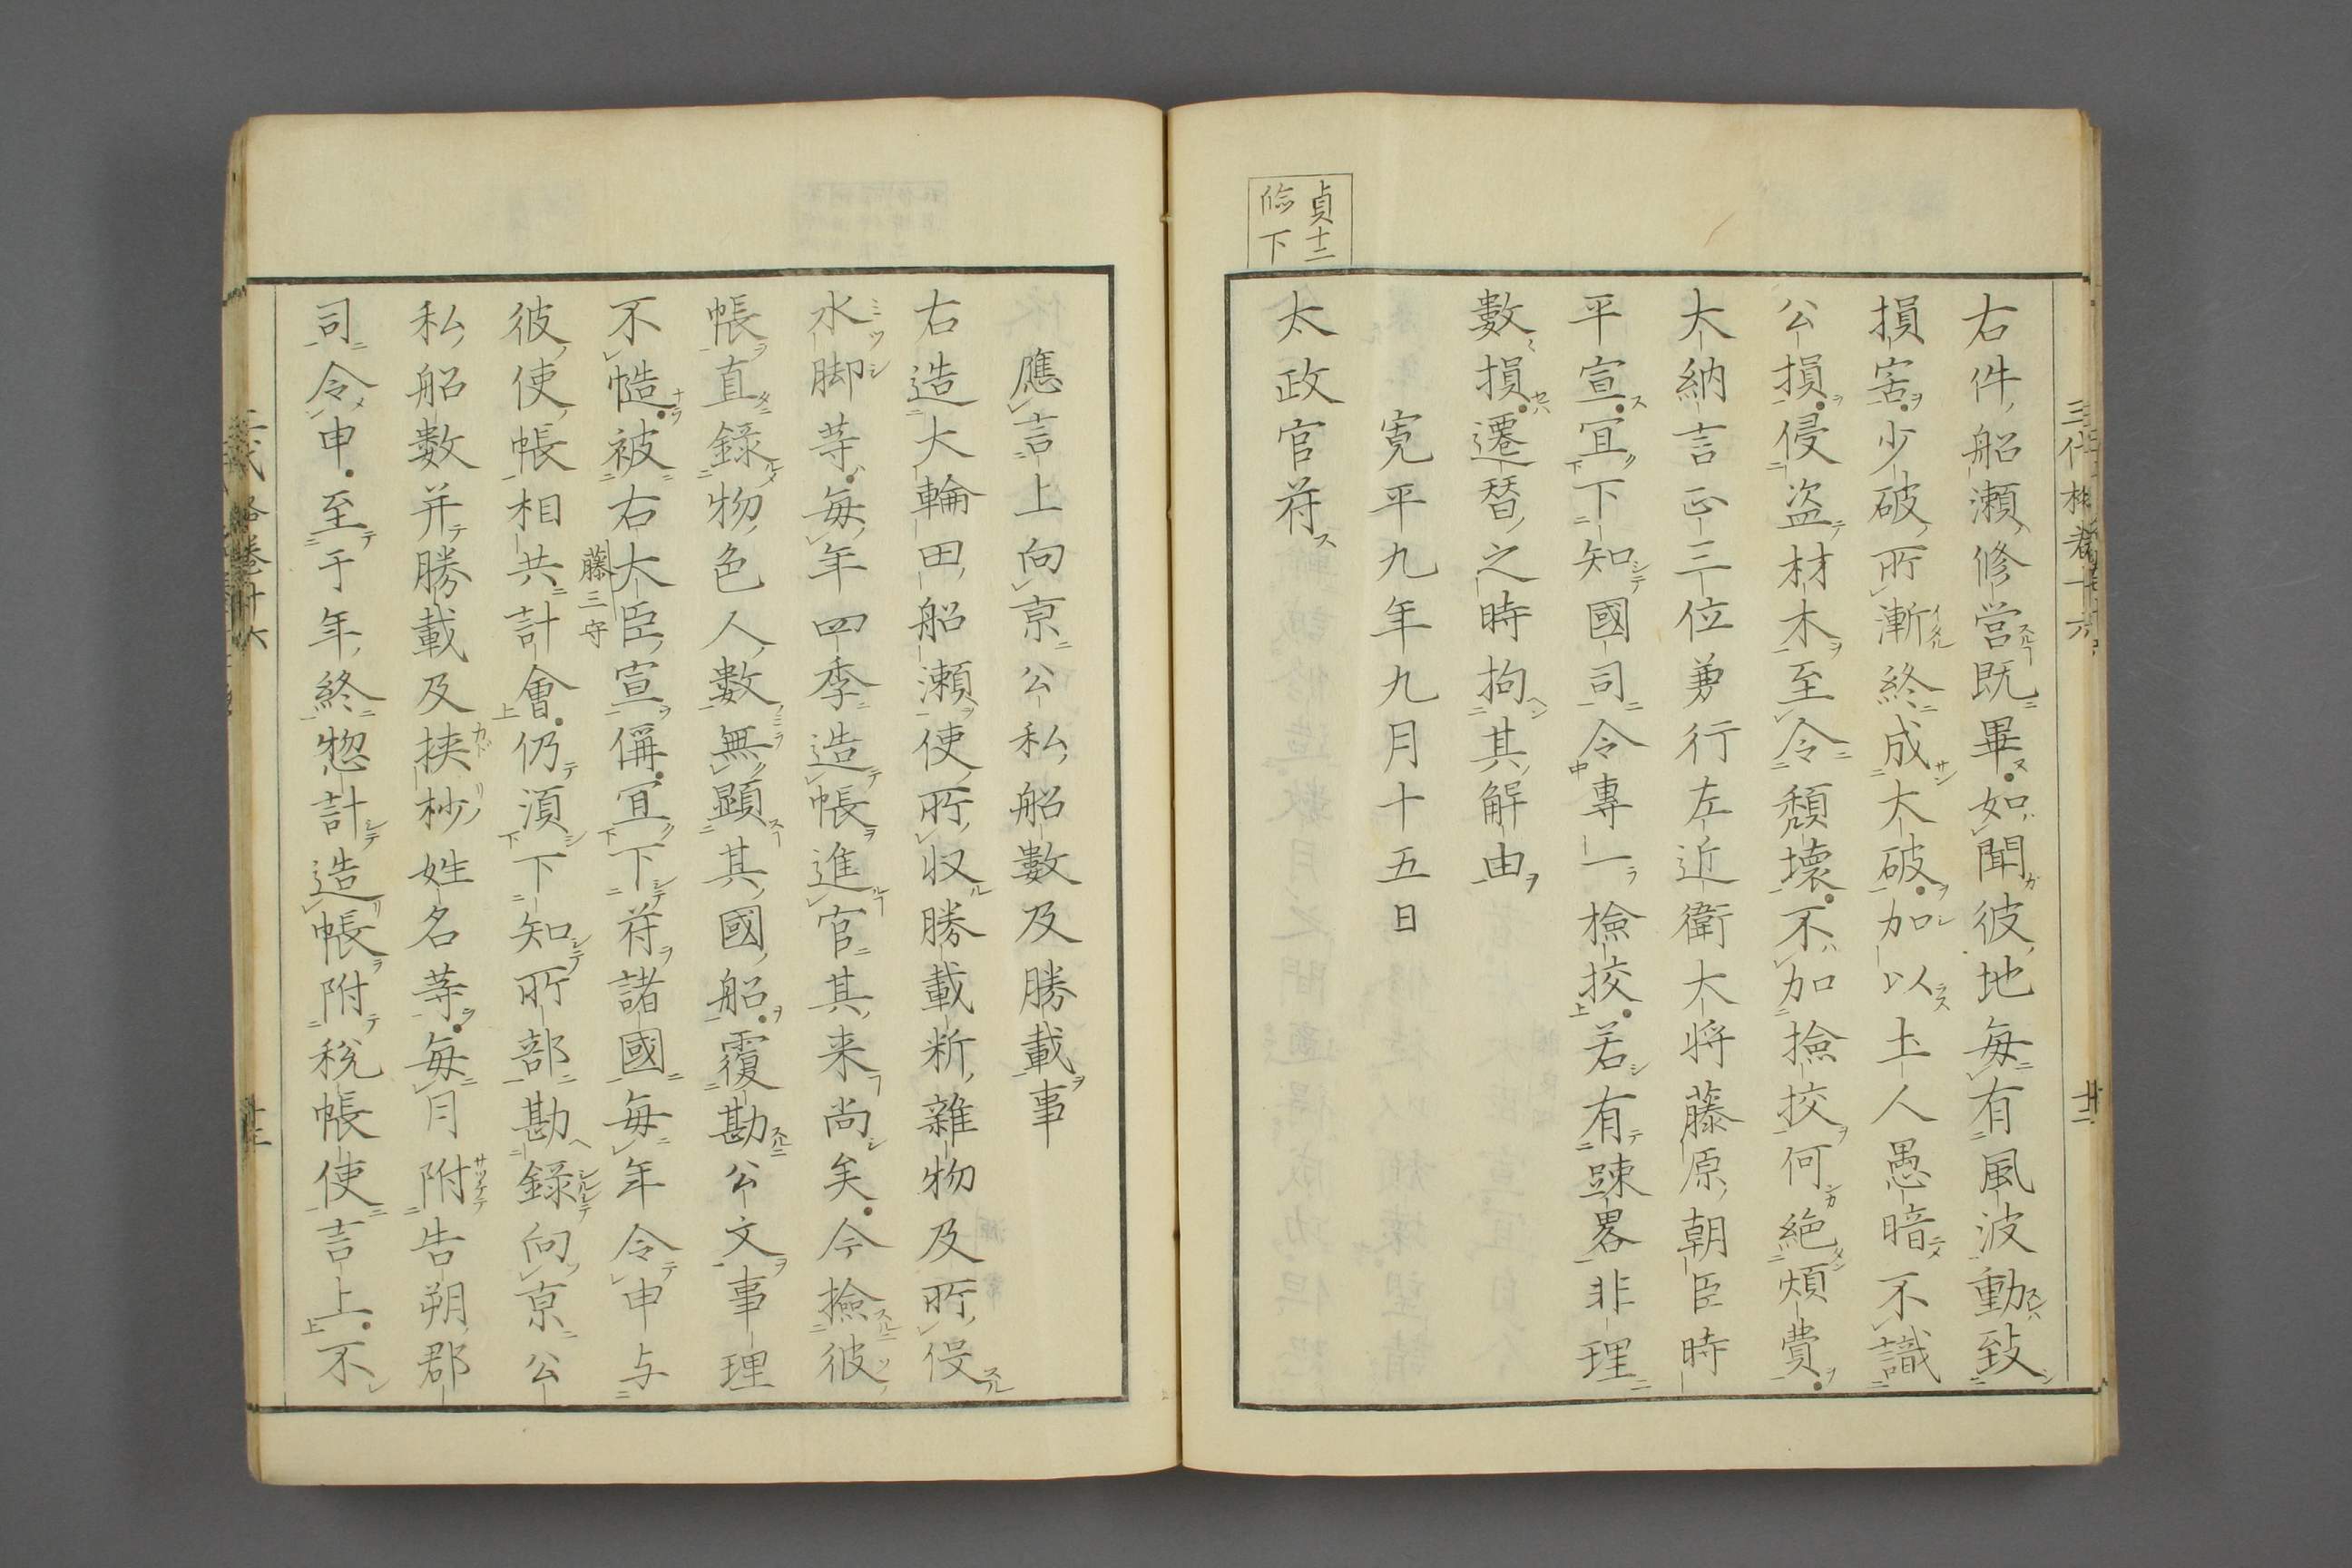 三代格卷十六
廿二
右件船瀬修営既畢如聞彼地毎有風波動致
損害少破所漸終成大破加以土人愚暗不識
公損侵盗材木至令頽壞不加撿挍何絶煩費
大納言正三位兼行左近衛大将藤原朝臣時
平宣宜下知國司令專一檢挍若有踈畧非理
數損遷替之時拘其解由
寛平九年九月十五日
貞十二
臨下
太政官符
應言上向京公私船數及勝載事
右造大輪田船瀬使所収勝載析雜物及所役
水脚等毎年四季造帳進官其来尚矣今撿彼
帳直録物色人數無顕其國船覆勘公文事理
不愷被右大臣宣偁宜下符諸國毎年令申与
藤三守
彼使帳相共計會仍湏下知所部勘録向京公
私船数并勝載及挟杪姓名等毎月附告朔郡
司令申至于年終惣計造帳附税帳使言上不